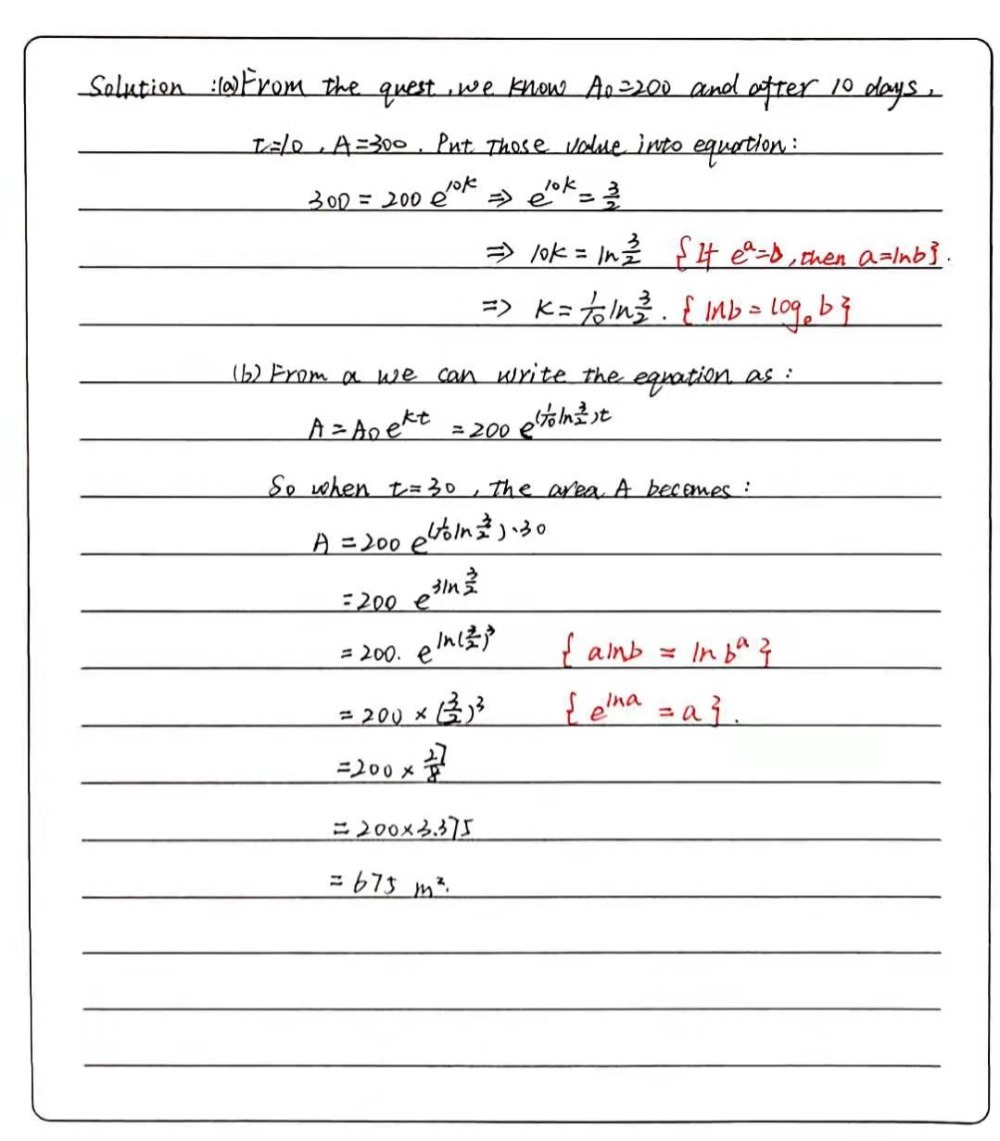 Solution :(a) From the quest, we know A₀=200 and after 10 days,
t=10, A=300. Put those value into equation:
300 = 200 e^{10k} ⇒ e^{10k} = 3/2
⇒ 10k = ln 3/2 {If e^a=b, then a=lnb}.
⇒ k = 1/10 ln 3/2. {lnb = logₑ b}
(b) From a we can write the equation as:
A = A₀ e^{kt} = 200 e^{(1/10 ln 3/2)t}
So when t=30, the area A becomes:
A = 200 e^{(1/10 ln 3/2)·30}
= 200 e^{3ln 3/2}
= 200. e^{ln(3/2)^3} {alnb = ln b^a}
= 200 × (3/2)^3 {e^{lna} = a}.
= 200 × 27/8
= 200×3.375
= 675 m².